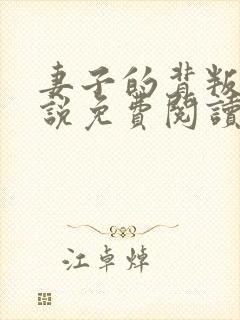 妻子的背叛
說免費閱讀
江卓焯